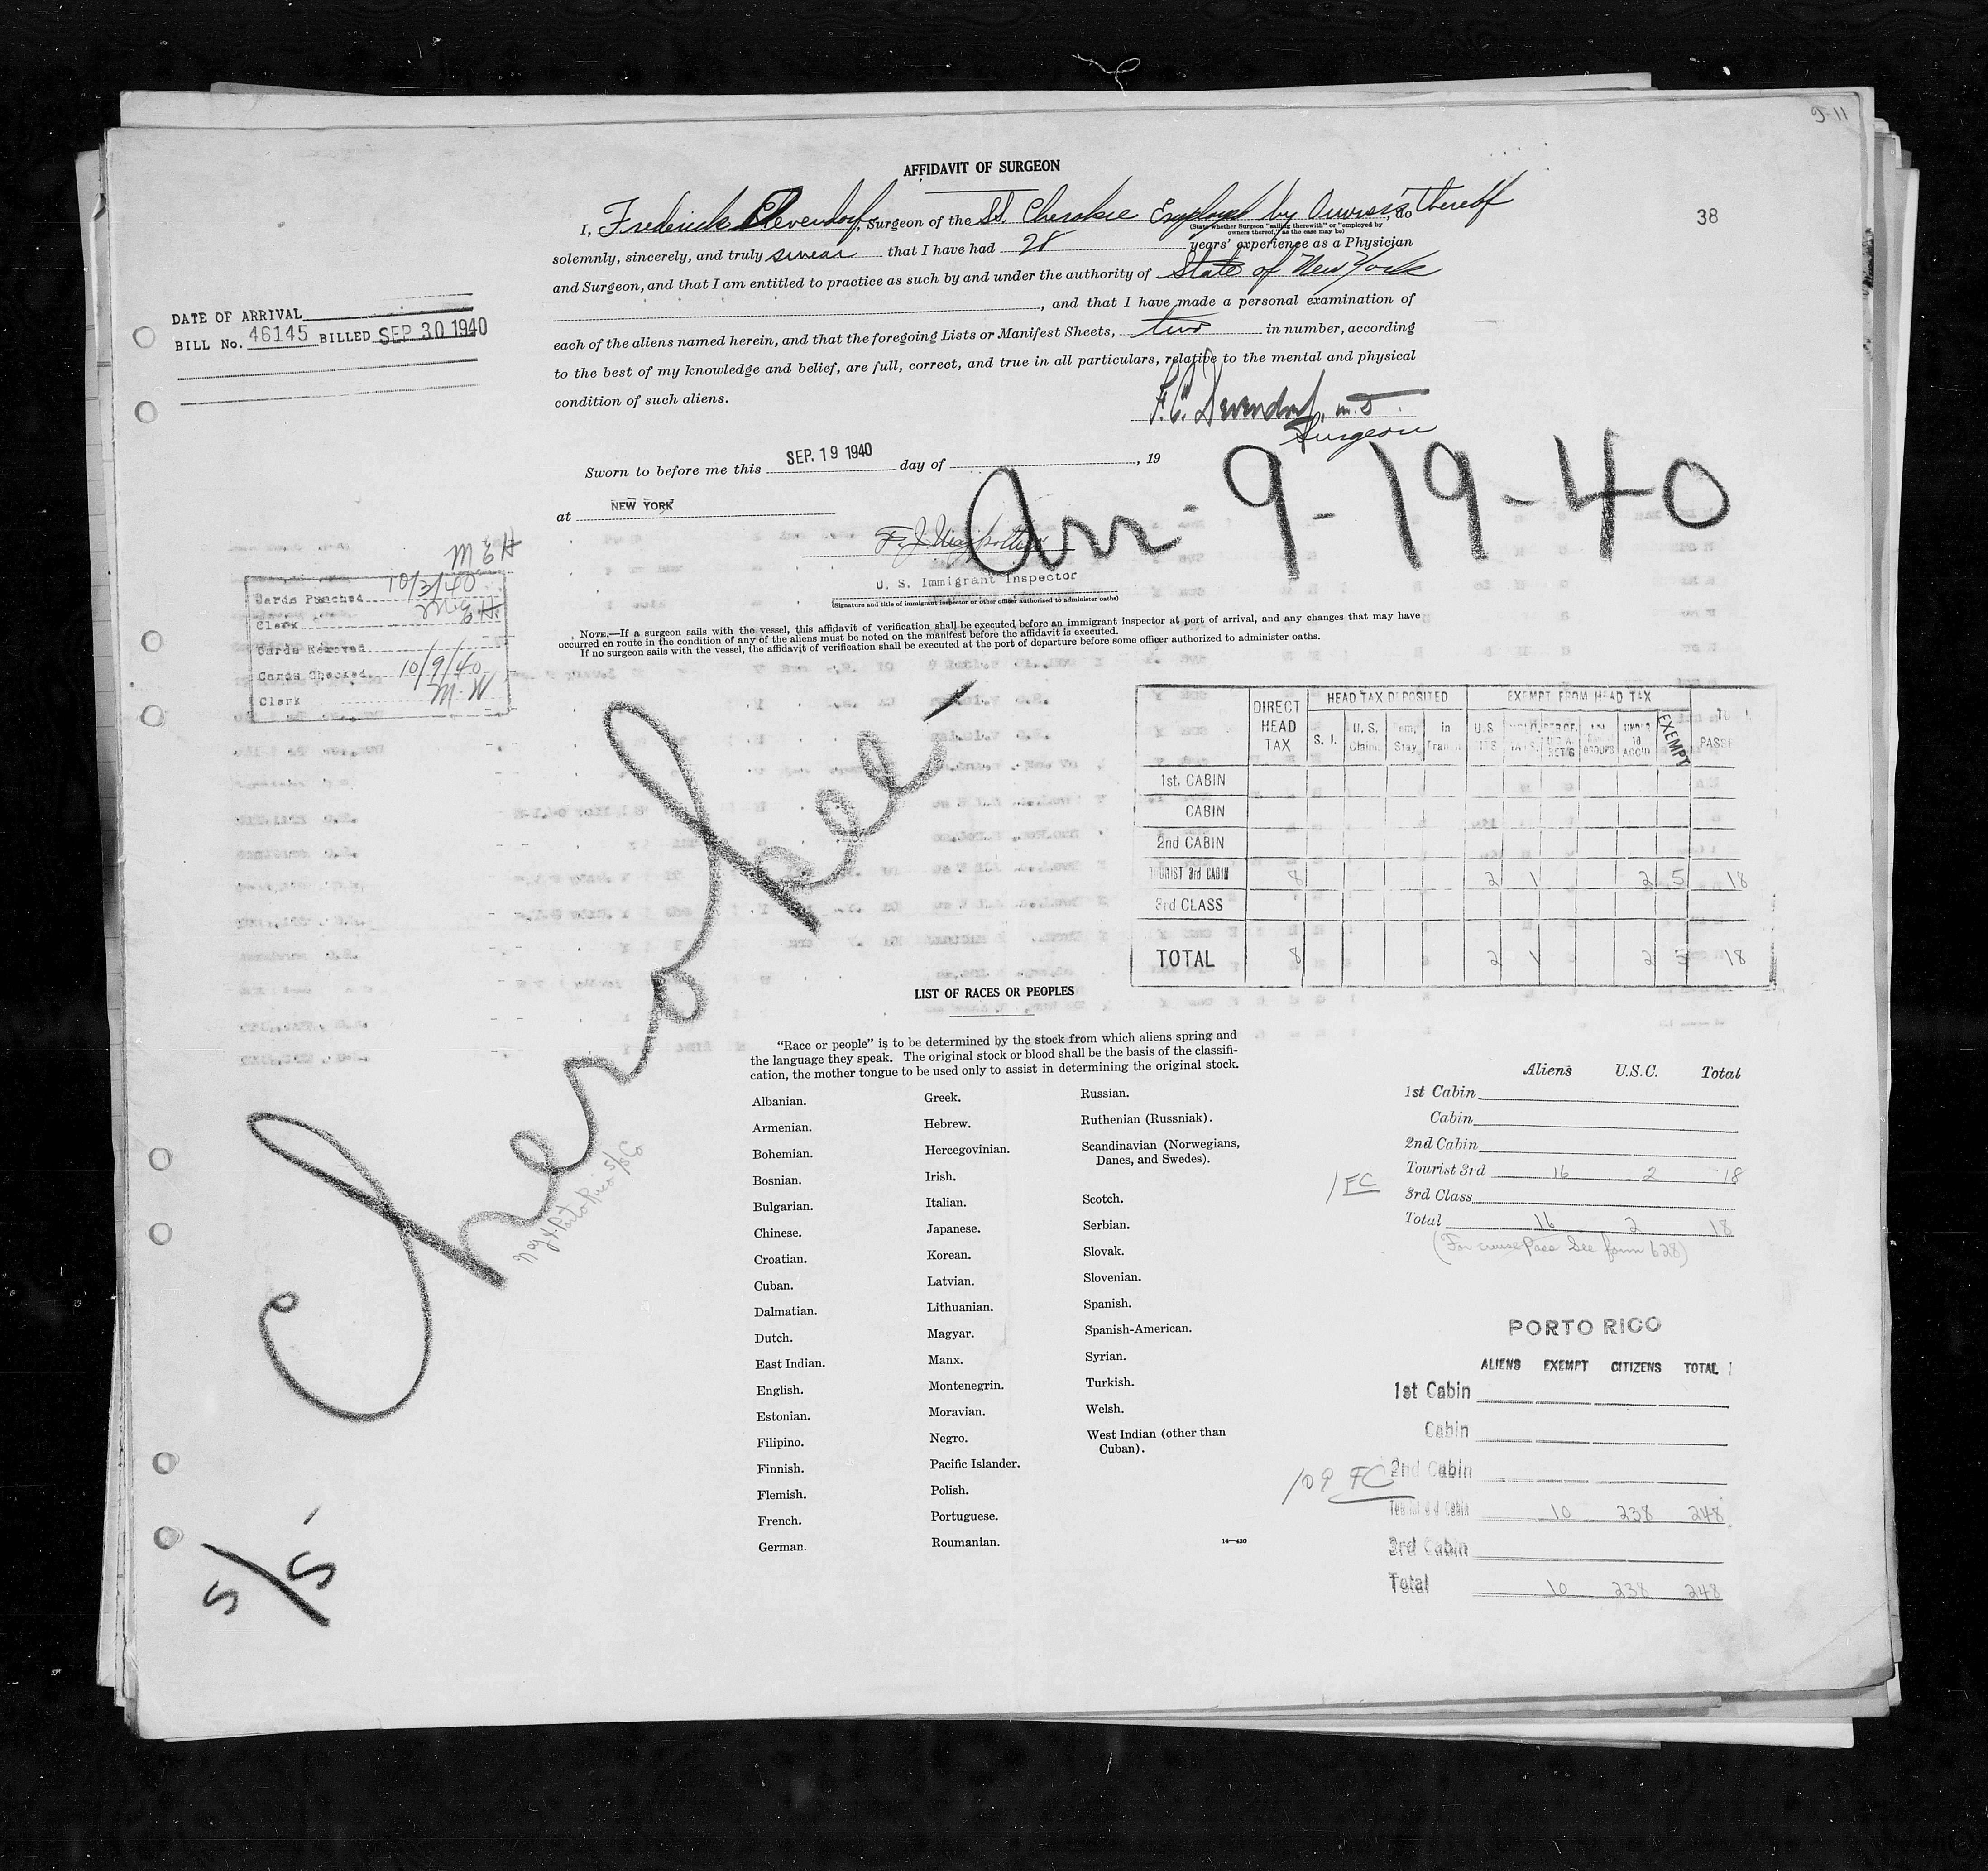 9-11
38
AFFIDAVIT OF SURGEON
I, Frederick Devendorf, Surgeon of the SS. Cherokee Employed by Owners thereof, do
(State whether Surgeon "sailing therewith" or "employed by
owners thereof," as the case may be)
solemnly, sincerely, and truly swear that I have had 28 years' experience as a Physician
and Surgeon, and that I am entitled to practice as such by and under the authority of State of New York
, and that I have made a personal examination of
each of the aliens named herein, and that the foregoing Lists or Manifest Sheets, two in number, according
to the best of my knowledge and belief, are full, correct, and true in all particulars, relative to the mental and physical
condition of such aliens.
F. C. Devendorf, M.D.
Surgeon
DATE OF ARRIVAL
BILL No. 46145 BILLED SEP 30 1940
Sworn to before me this SEP. 19 1940 day of , 19
at NEW YORK
Arr- 9-19-40
U. S. Immigrant Inspector
(Signature and title of immigrant inspector or other officer authorized to administer oaths)
M E H
Cards Punched 10/3/40
Clerk M.E.H.
Cards Removed
Cards Checked 10/9/40
Clerk M. W
NOTE.—If a surgeon sails with the vessel, this affidavit of verification shall be executed before an immigrant inspector at port of arrival, and any changes that may have
occurred en route in the condition of any of the aliens must be noted on the manifest before the affidavit is executed.
If no surgeon sails with the vessel, the affidavit of verification shall be executed at the port of departure before some officer authorized to administer oaths.
S/S. Cherokee
N Y & Porto Rico S/S Co
DIRECT HEAD TAX
HEAD TAX DEPOSITED
S. I. U. S. Claim. Tem. Stay In Tran.
EXEMPT FROM HEAD TAX
U.S. UNDER 16 ACC'D EXEMPT
PASSE
1st. CABIN
CABIN
2nd CABIN
TOURIST 3rd CABIN 8 2 1 2 5 18
3rd CLASS
TOTAL 8 2 1 2 5 18
LIST OF RACES OR PEOPLES
"Race or people" is to be determined by the stock from which aliens spring and
the language they speak. The original stock or blood shall be the basis of the classifi-
cation, the mother tongue to be used only to assist in determining the original stock.
Albanian.
Armenian.
Bohemian.
Bosnian.
Bulgarian.
Chinese.
Croatian.
Cuban.
Dalmatian.
Dutch.
East Indian.
English.
Estonian.
Filipino.
Finnish.
Flemish.
French.
German.
Greek.
Hebrew.
Hercegovinian.
Irish.
Italian.
Japanese.
Korean.
Latvian.
Lithuanian.
Magyar.
Manx.
Montenegrin.
Moravian.
Negro.
Pacific Islander.
Polish.
Portuguese.
Roumanian.
Russian.
Ruthenian (Russniak).
Scandinavian (Norwegians,
Danes, and Swedes).
Scotch.
Serbian.
Slovak.
Slovenian.
Spanish.
Spanish-American.
Syrian.
Turkish.
Welsh.
West Indian (other than
Cuban).
14—430
Aliens U.S.C. Total
1st Cabin
Cabin
2nd Cabin
Tourist 3rd 16 2 18
1 FC
3rd Class
Total 16 2 18
(For cruise Pass See form 628)
PORTO RICO
ALIENS EXEMPT CITIZENS TOTAL
1st Cabin
Cabin
109 FC
2nd Cabin
Tourist 3rd Cabin 10 238 248
3rd Cabin
Total 10 238 248